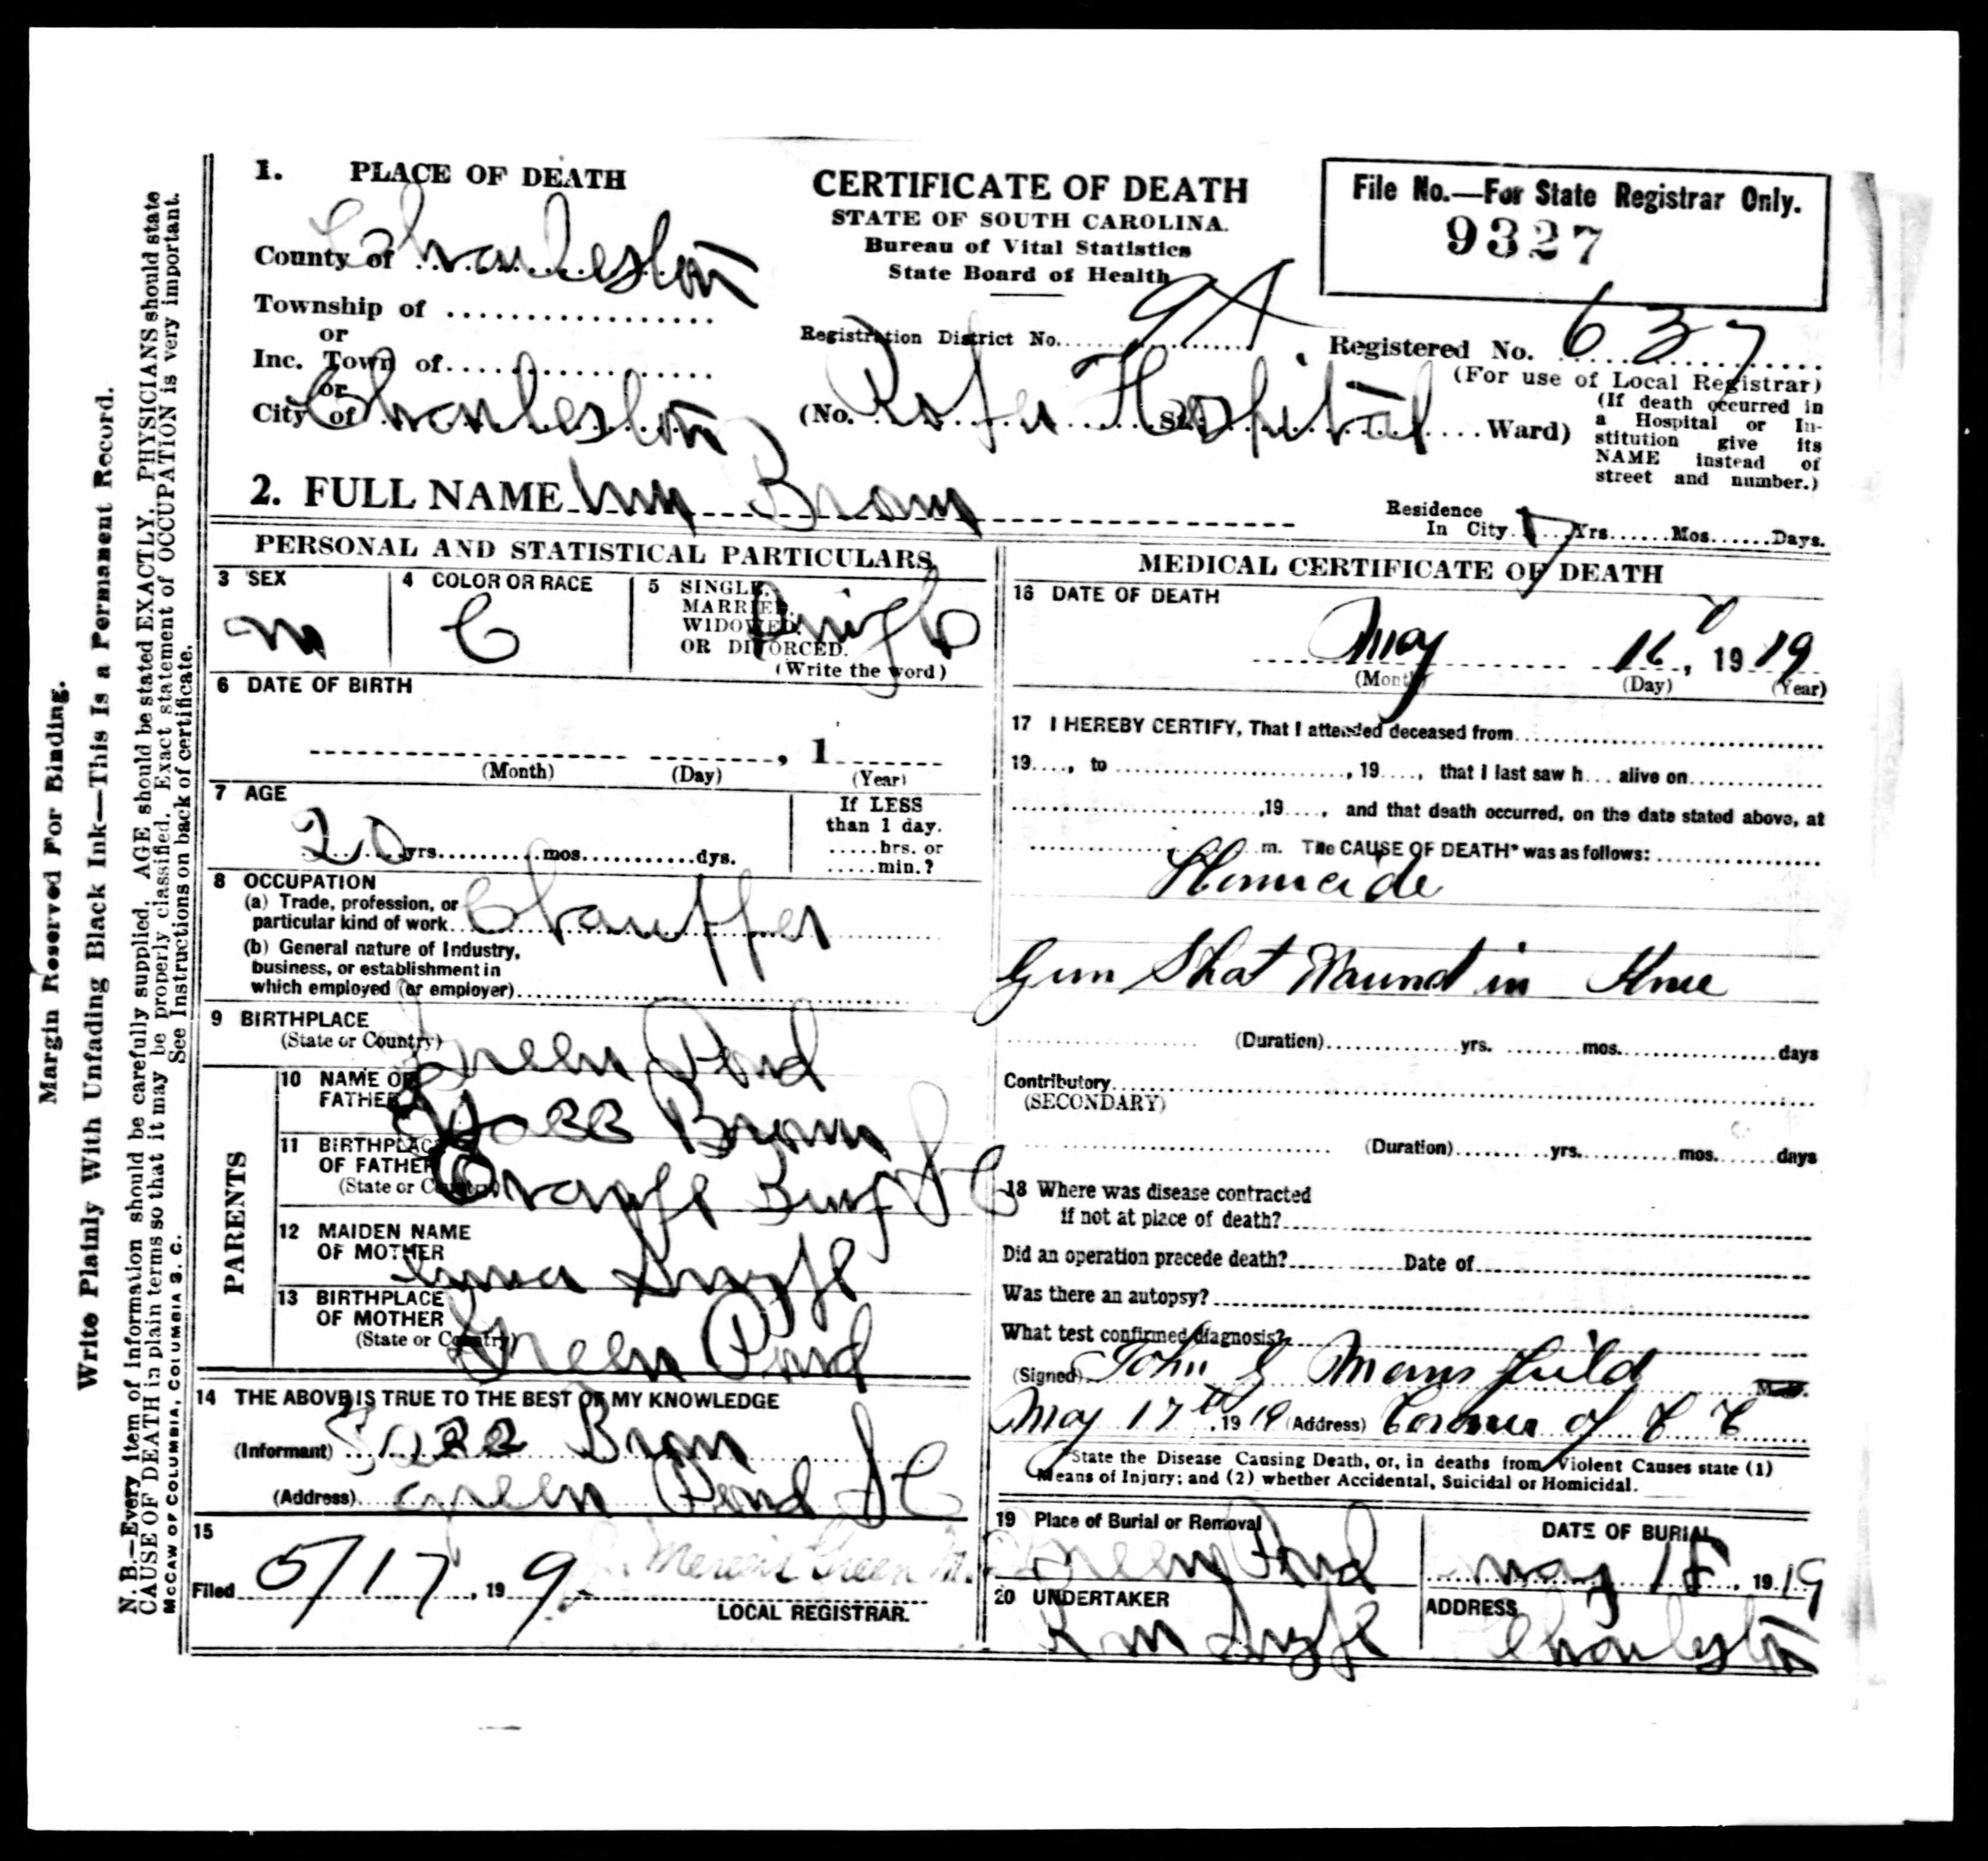 1. PLACE OF DEATH
County of Charleston
Township of
or
Inc. Town of
or
City of Charleston
CERTIFICATE OF DEATH
STATE OF SOUTH CAROLINA.
Bureau of Vital Statistics
State Board of Health
Registration District No. 9A
(No. Hospital St. Ward)
File No.—For State Registrar Only.
9327
Registered No. 637
(For use of Local Registrar)
(If death occurred in
a Hospital or In-
stitution give its
NAME instead of
street and number.)
2. FULL NAME Wm Brown
Residence
In City Yrs. Mos. Days.
PERSONAL AND STATISTICAL PARTICULARS
3 SEX
m
4 COLOR OR RACE
C
5 SINGLE,
MARRIED,
WIDOWED,
OR DIVORCED.
(Write the word)
Single
6 DATE OF BIRTH
, 1
(Month) (Day) (Year)
7 AGE
20 yrs. mos. dys.
If LESS
than 1 day.
hrs. or
min.?
8 OCCUPATION
(a) Trade, profession, or
particular kind of work Chauffer
(b) General nature of Industry,
business, or establishment in
which employed (or employer)
9 BIRTHPLACE
(State or Country)
Green Pond
PARENTS
10 NAME OF
FATHER
Brown
11 BIRTHPLACE
OF FATHER
(State or Country)
Orange Burg S C
12 MAIDEN NAME
OF MOTHER
13 BIRTHPLACE
OF MOTHER
(State or Country)
Green Pond
14 THE ABOVE IS TRUE TO THE BEST OF MY KNOWLEDGE
(Informant)
(Address) Green Pond S C
15
Filed 5/17, 19 9
LOCAL REGISTRAR.
MEDICAL CERTIFICATE OF DEATH
16 DATE OF DEATH
May 16, 19 19
(Month) (Day) (Year)
17 I HEREBY CERTIFY, That I attended deceased from
19, to , 19, that I last saw h alive on
, 19, and that death occurred, on the date stated above, at
m. The CAUSE OF DEATH* was as follows:
Homicide
Gun Shot Wound in Knee
(Duration) yrs. mos. days
Contributory
(SECONDARY)
(Duration) yrs. mos. days
18 Where was disease contracted
if not at place of death?
Did an operation precede death? Date of
Was there an autopsy?
What test confirmed diagnosis?
(Signed) John G Mansfield M.D.
May 17th, 19 19 (Address) Coroner of C C
*State the Disease Causing Death, or, in deaths from Violent Causes state (1)
Means of Injury; and (2) whether Accidental, Suicidal or Homicidal.
19 Place of Burial or Removal
Green Pond
DATE OF BURIAL
May 18, 19 19
20 UNDERTAKER
ADDRESS
Charleston
Margin Reserved For Binding.
Write Plainly With Unfading Black Ink—This Is a Permanent Record.
N. B.—Every item of information should be carefully supplied. AGE should be stated EXACTLY. PHYSICIANS should state
CAUSE OF DEATH in plain terms so that it may be properly classified. Exact statement of OCCUPATION is very important.
See Instructions on back of certificate.
McCAW OF COLUMBIA, COLUMBIA S. C.